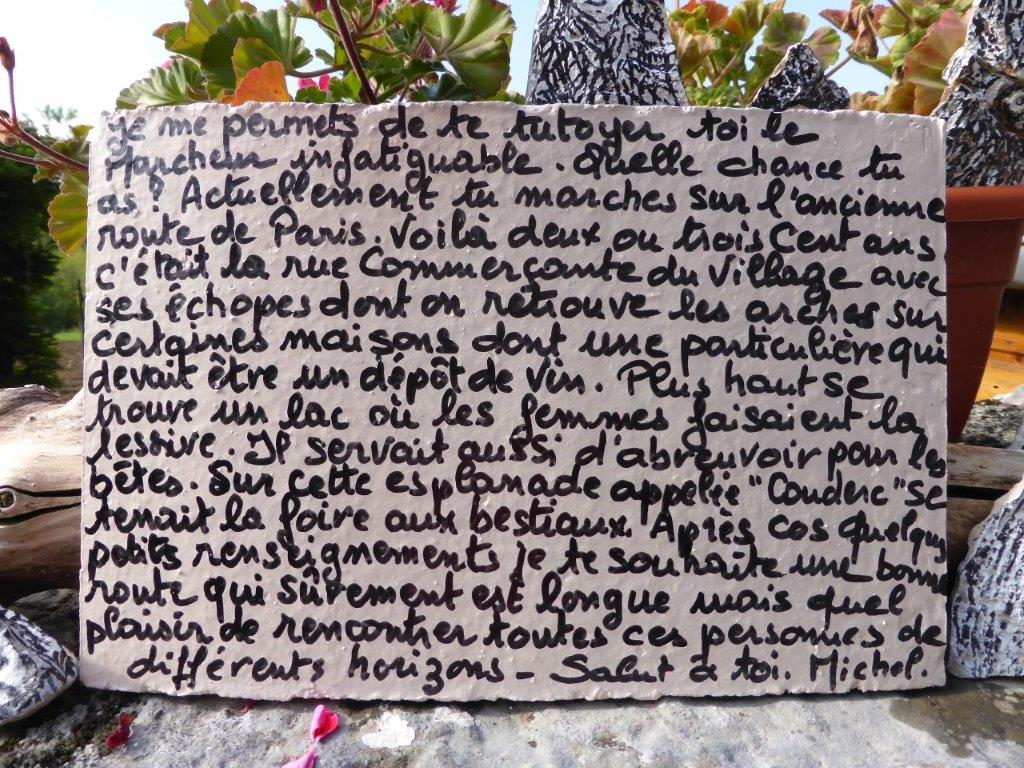 Je me permets de te tutoyer toi le
Marcheur infatiguable. Quelle chance tu
as! Actuellement tu marches sur l'ancienne
route de Paris. Voilà deux ou trois Cent ans
c'était la rue Commerçante du village avec
ses échopes dont on retrouve les arches sur
certaines maisons dont une particulière qui
devait être un dépôt de vin. Plus haut se
trouve un lac où les femmes faisaient la
lessive. Il servait aussi d'abreuvoir pour les
bêtes. Sur cette esplanade appelée "Couderc" se
tenait la foire aux bestiaux. Après ces quelques
petits renseignements je te souhaite une bonne
route qui sûrement est longue mais quel
plaisir de rencontrer toutes ces personnes de
différents horizons - Salut à toi. Michel.